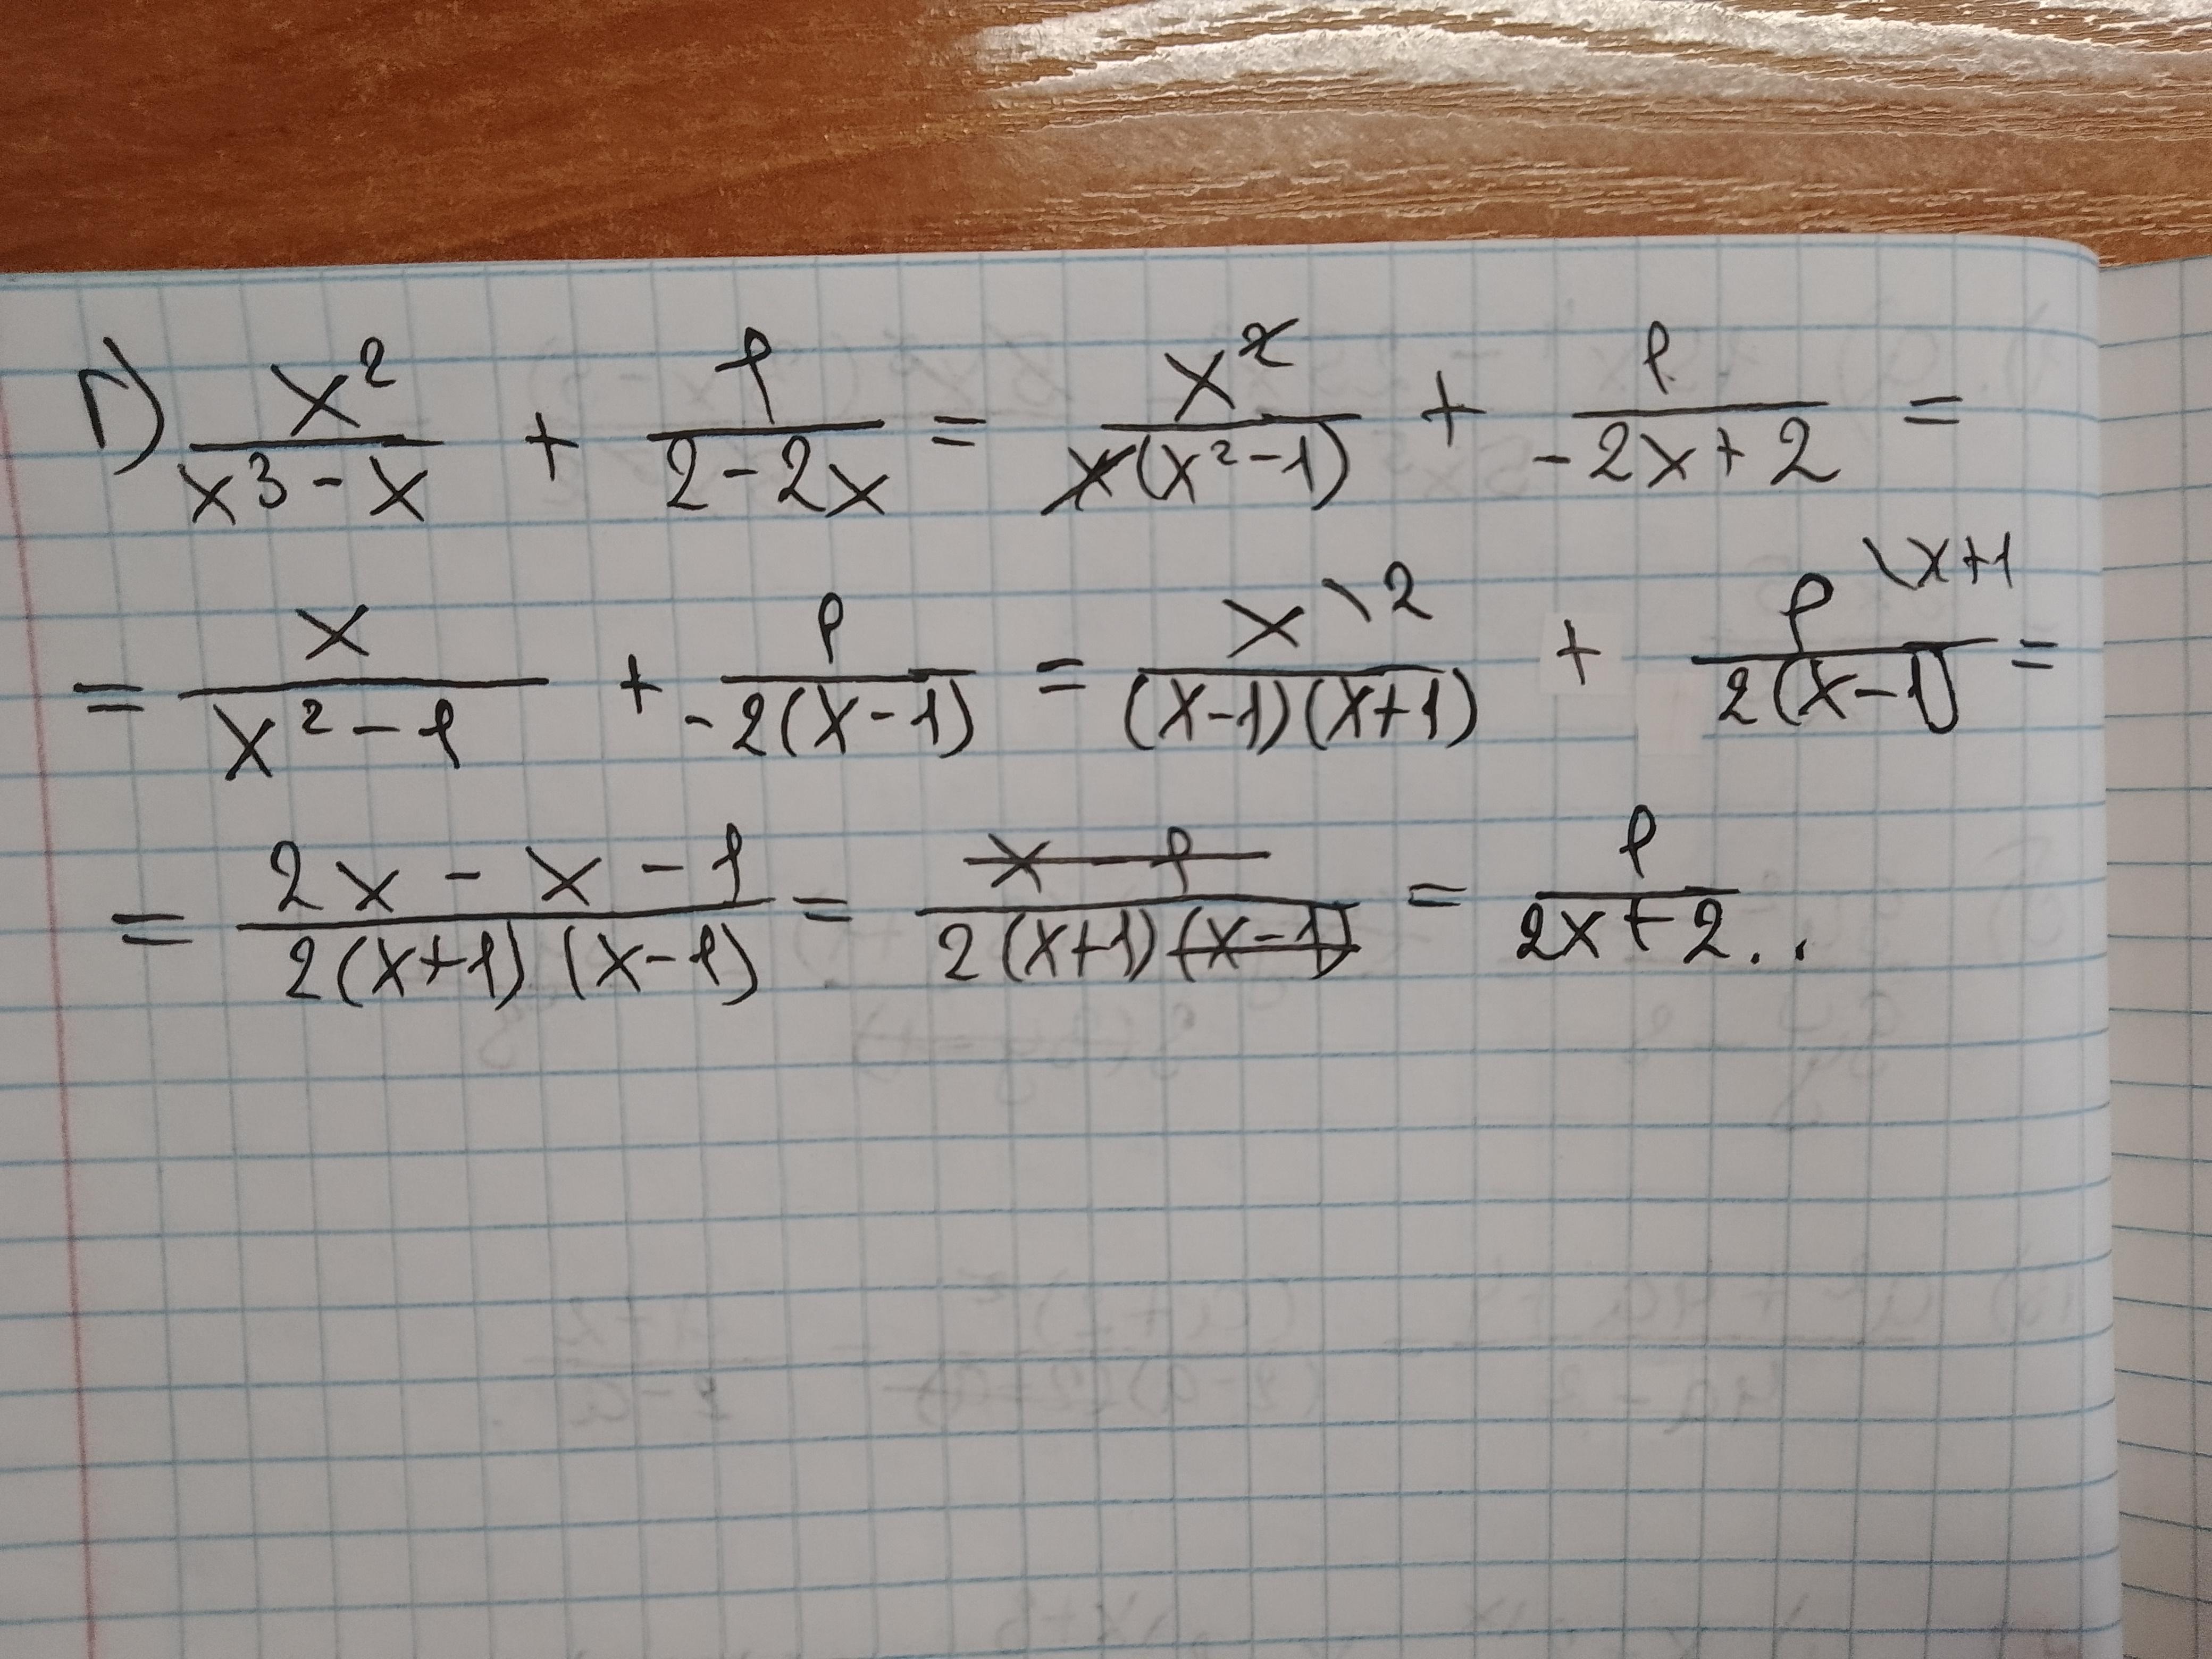 г) x²/(x³ - x) + 1/(2 - 2x) = x²/(x(x² - 1)) + 1/(-2x + 2) =
= x/(x² - 1) + 1/(-2(x - 1)) = x\2/((x - 1)(x + 1)) + 1\x+1/(2(x - 1)) =
= (2x - x - 1)/(2(x + 1)(x - 1)) = (x - 1)/(2(x + 1)(x - 1)) = 1/(2x + 2)..